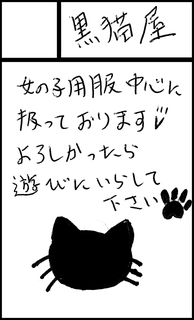 黒猫屋
女の子用服中心に
扱っております
よろしかったら
遊びにいらして
下さい